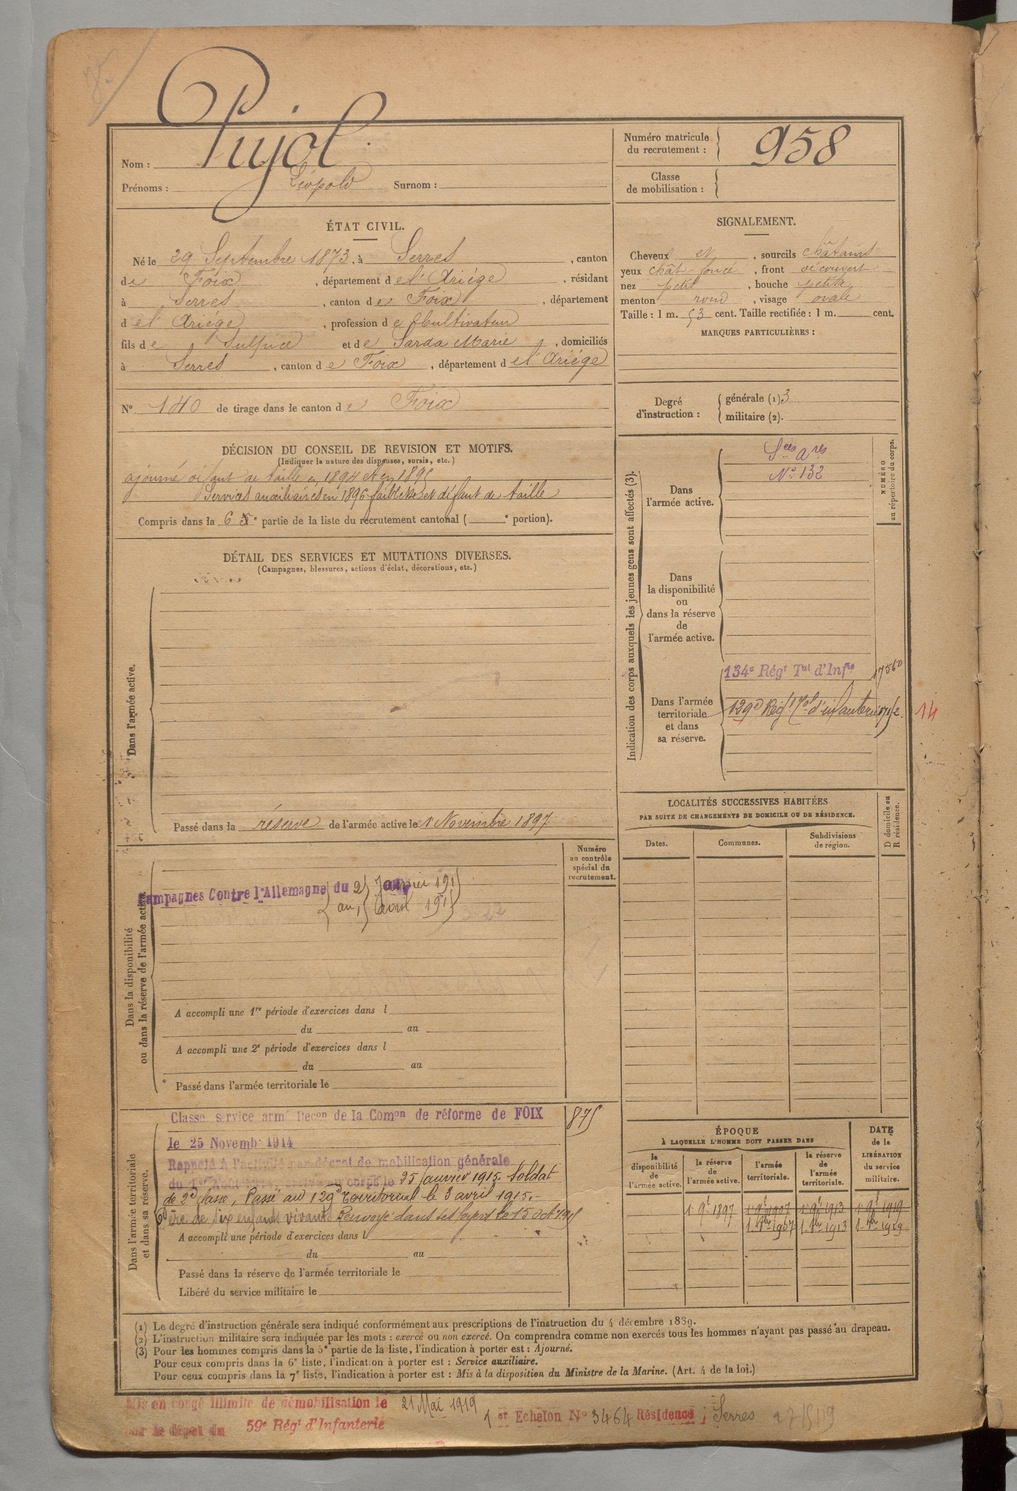 Nom : Pujol
Prénoms : Léopold Surnom :
Numéro matricule du recrutement : 958
Classe de mobilisation :
ÉTAT CIVIL.
Né le 29 Septembre 1873, à Serres, canton
de Foix, département de l'Ariège, résidant
à Serres, canton de Foix, département
de l'Ariège, profession de Cultivateur
fils de Sulpice et de Sarda Marie, domiciliés
à Serres, canton de Foix, département de l'Ariège
N° 140 de tirage dans le canton de Foix
SIGNALEMENT.
Cheveux et, sourcils châtains
yeux chât foncé, front découvert
nez petit, bouche petite
menton rond, visage ovale
Taille : 1 m. 53 cent. Taille rectifiée : 1 m. cent.
MARQUES PARTICULIÈRES :
Degré d'instruction : générale (1) 3
militaire (2).
DÉCISION DU CONSEIL DE REVISION ET MOTIFS.
(Indiquer la nature des dispenses, sursis, etc.)
ajourné défaut de taille en 1894 et en 1895
Services auxiliaires en 1896 faiblesse et défaut de taille
Compris dans la 6e partie de la liste du recrutement cantonal ( e portion).
DÉTAIL DES SERVICES ET MUTATIONS DIVERSES.
(Campagnes, blessures, actions d'éclat, décorations, etc.)
Dans l'armée active.
Passé dans la réserve de l'armée active le 1 Novembre 1897
Indication des corps auxquels les jeunes gens sont affectés (3).
NUMÉRO au répertoire du corps.
Dans l'armée active.
Sces Ares
N° 132
Dans la disponibilité ou dans la réserve de l'armée active.
Dans l'armée territoriale et dans sa réserve.
134e Régt Tal d'Infie
129e Régt Tal d'infanterie
14
LOCALITÉS SUCCESSIVES HABITÉES
PAR SUITE DE CHANGEMENTS DE DOMICILE OU DE RÉSIDENCE.
Dates.
Communes.
Subdivisions de région.
D domicile ou R résidence.
Numéro au contrôle spécial du recrutement.
Dans la disponibilité ou dans la réserve de l'armée active.
Campagnes Contre l'Allemagne du 2 Janvier 191
au avril 191
A accompli une 1re période d'exercices dans l
du au
A accompli une 2e période d'exercices dans l
du au
Passé dans l'armée territoriale le
Dans l'armée territoriale et dans sa réserve.
Classé service armé Décon de la Comon de réforme de FOIX
875
le 25 Novembre 1914
Rappelé à l'activité par décret de mobilisation générale
du au corps le 25 janvier 1915. Soldat
de 2e classe, Passé au 129e Territorial le 3 avril 1915.
Père de six enfants vivants Renvoyé dans ses foyers le 15 oct 1915
A accompli une période d'exercices dans l
du au
Passé dans la réserve de l'armée territoriale le
Libéré du service militaire le
ÉPOQUE
À LAQUELLE L'HOMME DOIT PASSER DANS
la disponibilité de l'armée active.
la réserve de l'armée active.
l'armée territoriale.
la réserve de l'armée territoriale.
DATE de la LIBÉRATION du service militaire.
1 9e 1897 1 9e 1907 1 9e 1913 1 9e 1919
1. 8bre 1907 1. 8bre 1913 1. 8bre 1919
(1) Le degré d'instruction générale sera indiqué conformément aux prescriptions de l'instruction du 4 décembre 1889.
(2) L'instruction militaire sera indiquée par les mots : exercé ou non exercé. On comprendra comme non exercés tous les hommes n'ayant pas passé au drapeau.
(3) Pour les hommes compris dans la 5e partie de la liste, l'indication à porter est : Ajourné.
Pour ceux compris dans la 6e liste, l'indication à porter est : Service auxiliaire.
Pour ceux compris dans la 7e liste, l'indication à porter est : Mis à la disposition du Ministre de la Marine. (Art. 4 de la loi.)
Mis en congé illimité de démobilisation le 21 Mai 1919 1er Echelon N° 3464 Résidence Serres
par le dépôt du 59e Régt d'Infanterie